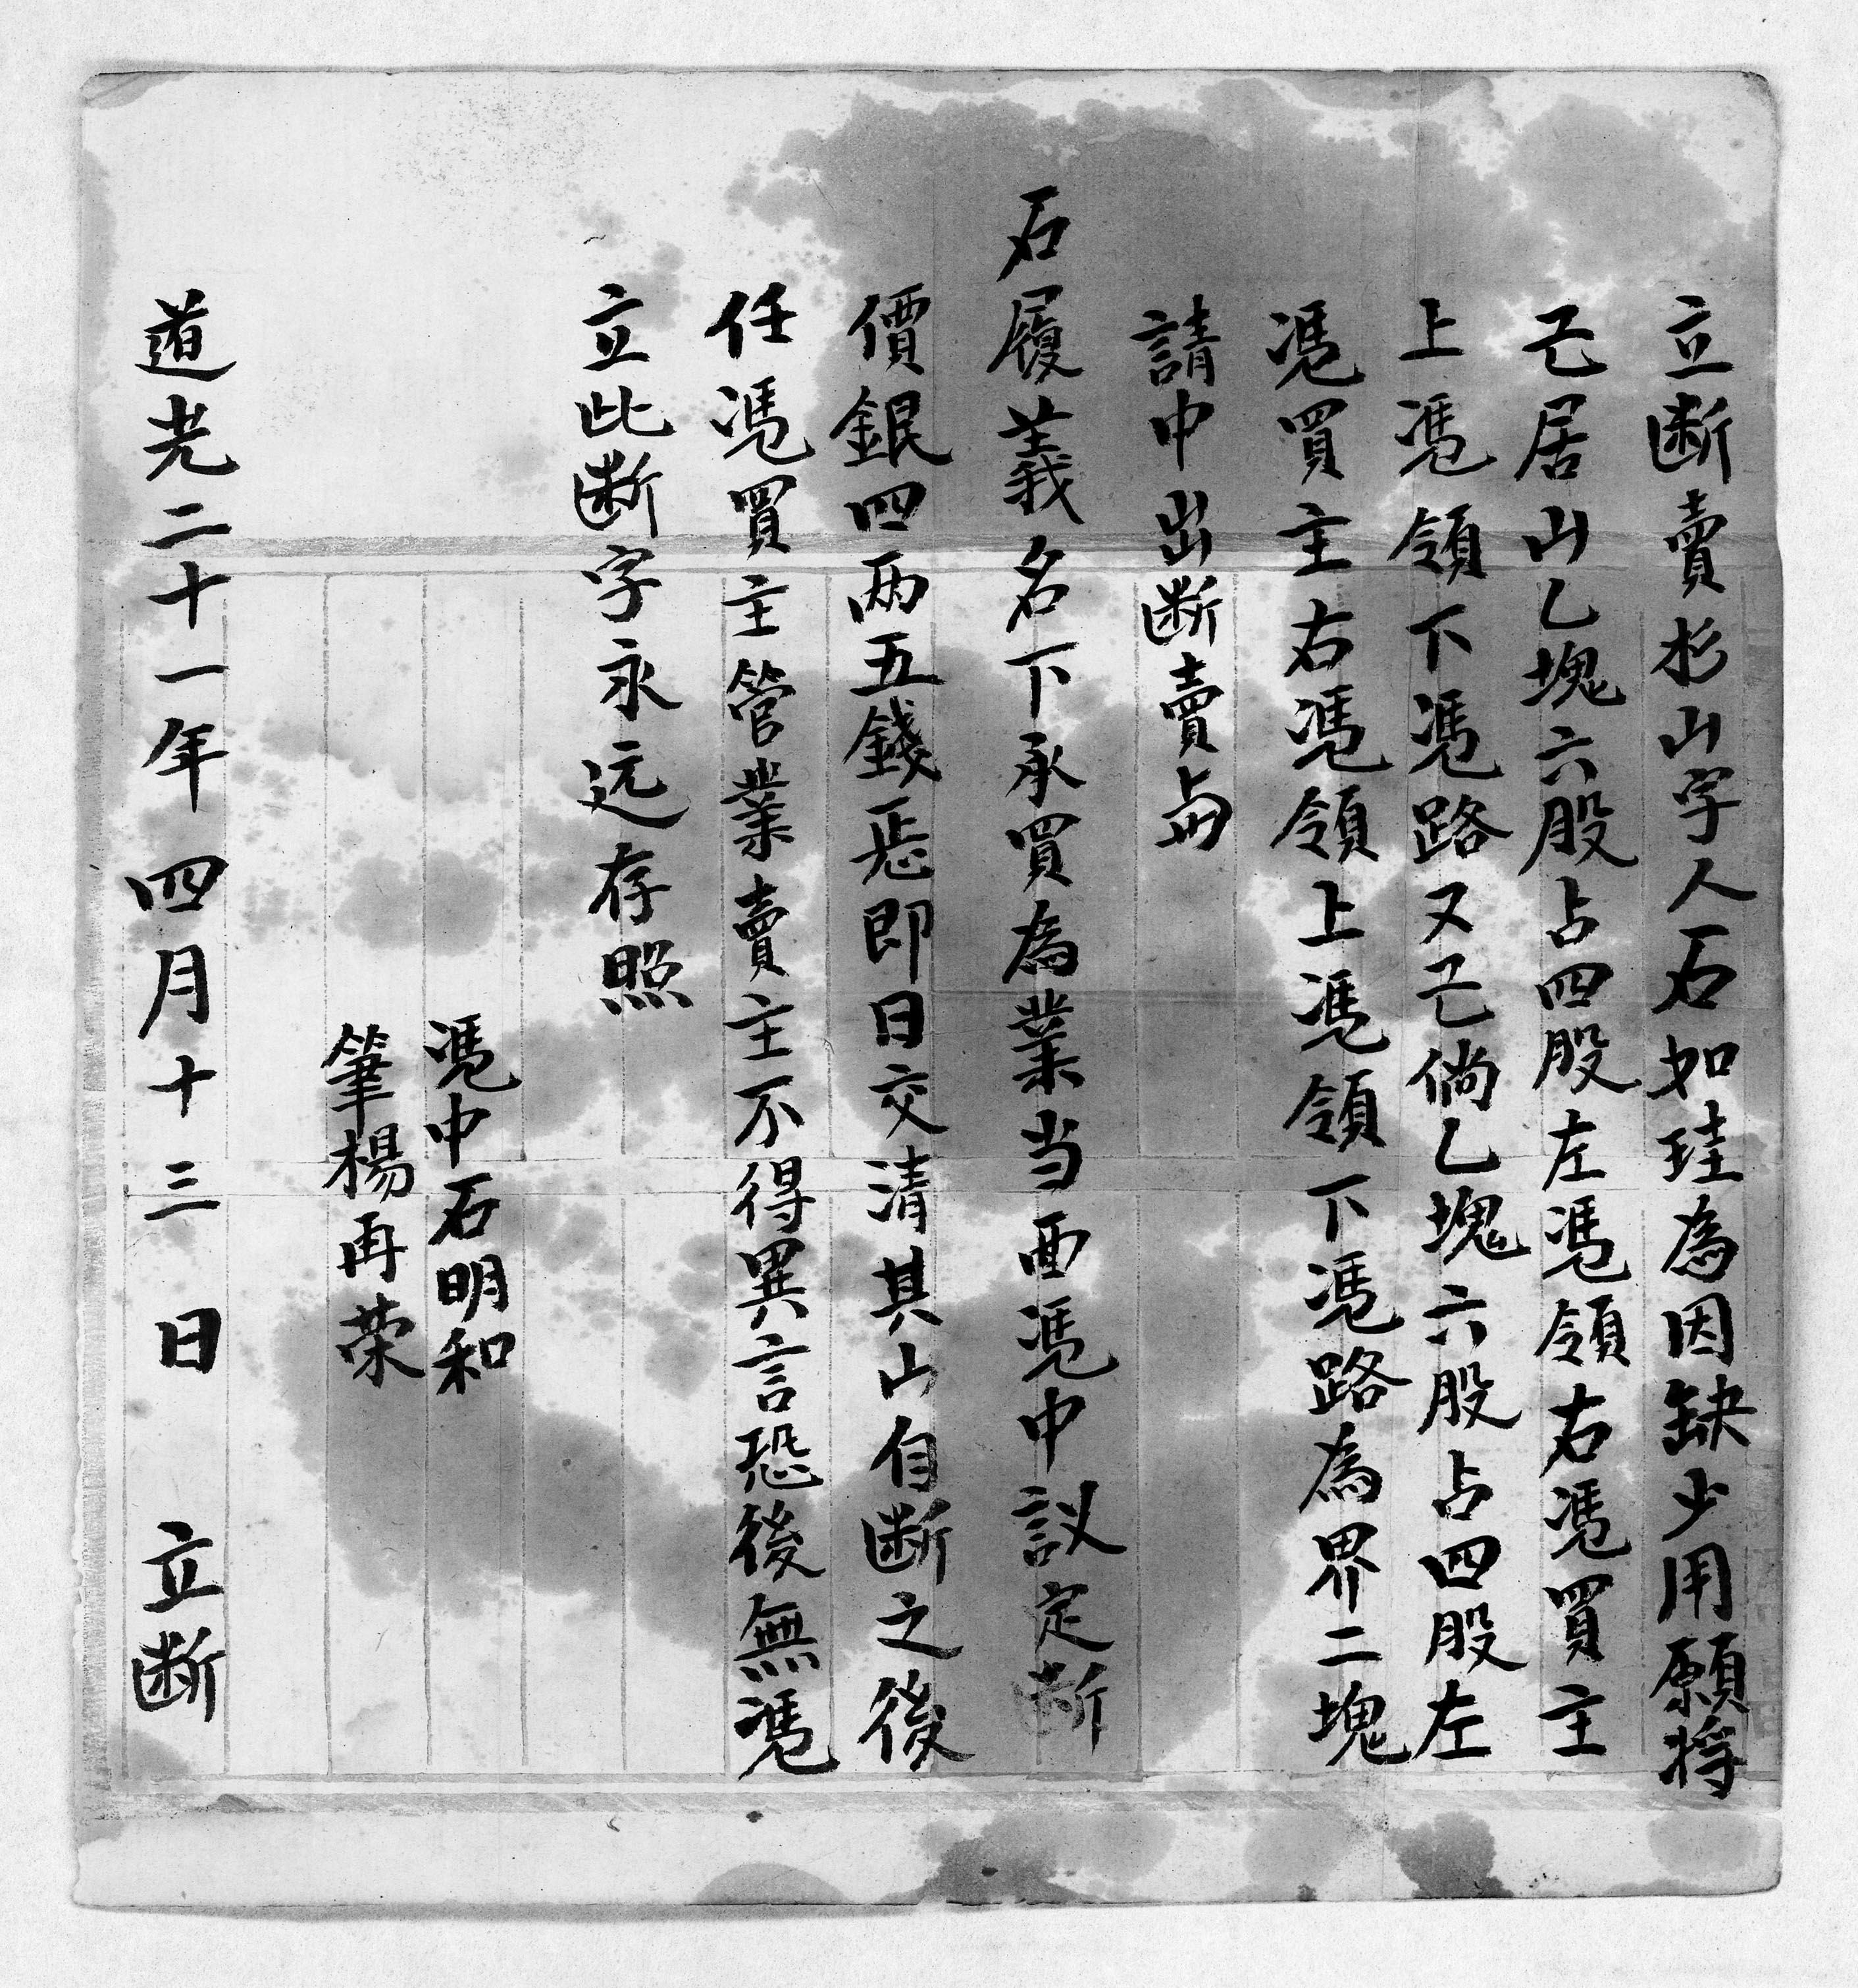 立断賣杉山字人石如珪為因缺少用願将
己居山乙塊六股占四股左馮領右馮買主
上馮領下馮路又己倘乙塊六股占四股左
馮買主右馮領上馮領下馮路為界二塊
請中出断賣与
石履義名下承買為業当面馮中議定断
價銀四両五錢㤀即日交清其山自断之後
任馮買主管業賣主不得異言恐後無馮
立此断字永远存照
馮中石明和
筆楊再荣
道光二十一年四月十三日立断